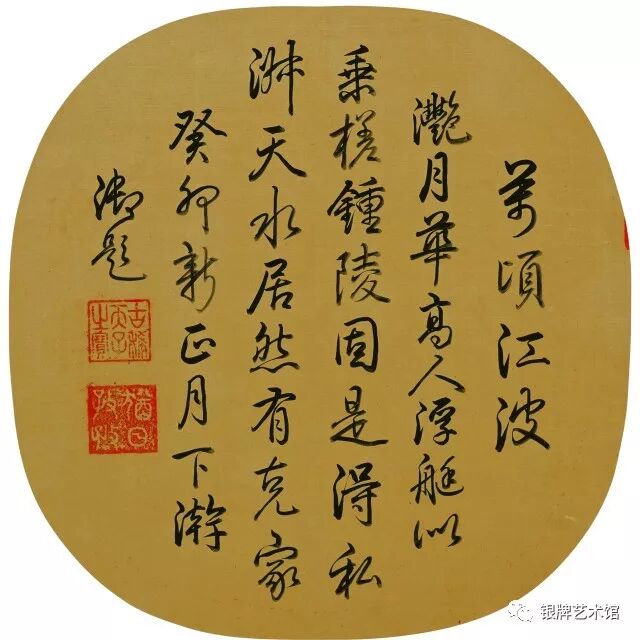 萬頃江波
灩月華高人浮艇似
乘槎鍾陵固是得私
淑天水居然有克家
癸卯新正月下澣
御題
古稀天子之寶
猶日孜孜
银牌艺术馆